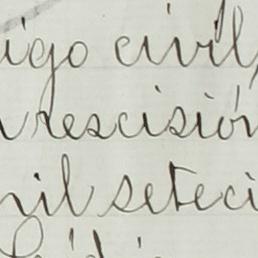 igo civil,
rescisión
mil seteci